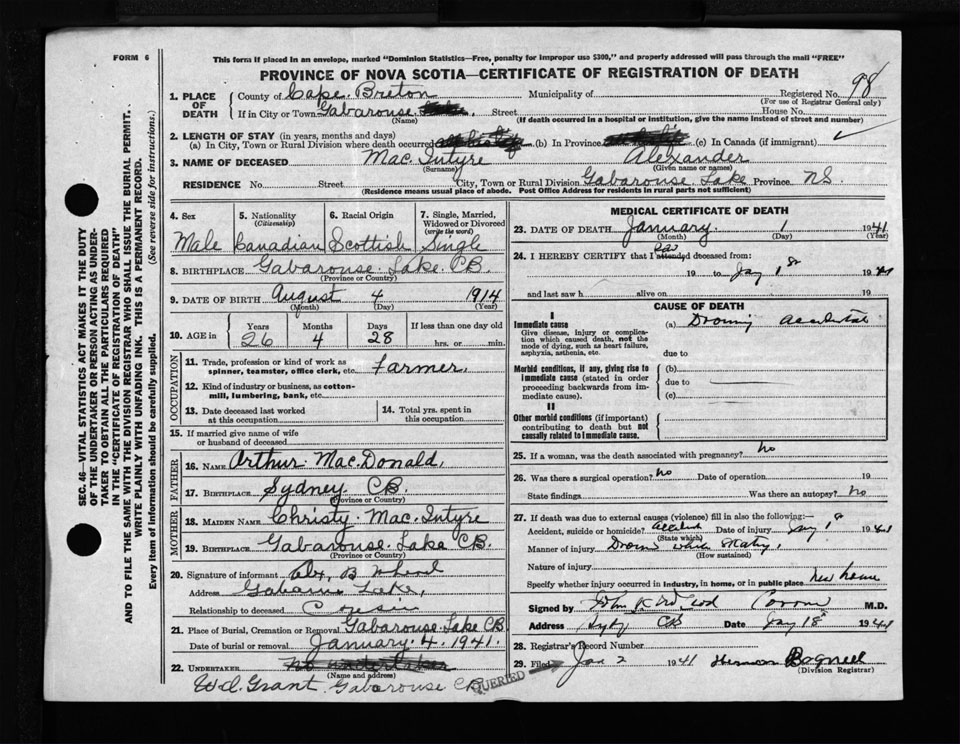 FORM 6
This form if placed in an envelope, marked "Dominion Statistics—Free, penalty for improper use $300," and properly addressed will pass through the mail "FREE"
PROVINCE OF NOVA SCOTIA—CERTIFICATE OF REGISTRATION OF DEATH
Registered No. 98
(For use of Registrar General only)
1. PLACE OF DEATH
County of Cape Breton Municipality of
If in City or Town Gabarouse Street House No.
(Name) (If death occurred in a hospital or institution, give the name instead of street and number)
2. LENGTH OF STAY (in years, months and days)
(a) In City, Town or Rural Division where death occurred (b) In Province (c) In Canada (if immigrant)
3. NAME OF DECEASED Mac Intyre Alexander
(Surname) (Given name or names)
RESIDENCE No. Street City, Town or Rural Division Gabarouse Lake Province NS.
(Residence means usual place of abode. Post Office Address for Residents in rural parts not sufficient)
4. Sex
Male
5. Nationality
(Citizenship)
Canadian
6. Racial Origin
Scottish
7. Single, Married, Widowed or Divorced
(write the word)
Single
8. BIRTHPLACE Gabarouse Lake CB.
(Province or Country)
9. DATE OF BIRTH August 4 1914
(Month) (Day) (Year)
10. AGE in Years Months Days If less than one day old
26 4 28 hrs. or min.
OCCUPATION
11. Trade, profession or kind of work as spinner, teamster, office clerk, etc. Farmer.
12. Kind of industry or business, as cotton-mill, lumbering, bank, etc.
13. Date deceased last worked at this occupation
14. Total yrs. spent in this occupation
15. If married give name of wife or husband of deceased
FATHER
16. NAME Arthur Mac Donald,
17. BIRTHPLACE Sydney CB
(Province or Country)
MOTHER
18. MAIDEN NAME Christy Mac Intyre
19. BIRTHPLACE Gabarouse Lake CB.
(Province or Country)
20. Signature of informant Alex. B
Address Lake,
Relationship to deceased
21. Place of Burial, Cremation or Removal Gabarouse Lake CB
Date of burial or removal January 4 1941.
22. UNDERTAKER
(Name and address)
Grant. Gabarouse CB
QUERIED
MEDICAL CERTIFICATE OF DEATH
23. DATE OF DEATH January. 1 1941
(Month) (Day) (Year)
24. I HEREBY CERTIFY that I attended deceased from:
19 to Jay 1 1941
and last saw h alive on 19
CAUSE OF DEATH
I
Immediate cause
Give disease, injury or complication which caused death, not the mode of dying, such as heart failure, asphyxia, asthenia, etc.
(a)
due to
Morbid conditions, if any, giving rise to immediate cause (stated in order proceeding backwards from immediate cause).
(b)
due to
(c)
II
Other morbid conditions (if important) contributing to death but not causally related to Immediate cause.
25. If a woman, was the death associated with pregnancy? no
26. Was there a surgical operation? no Date of operation 19
State findings Was there an autopsy? no
27. If death was due to external causes (violence) fill in also the following:
Accident, suicide or homicide? Date of injury Jay 1 1941
(State which)
Manner of injury
(How sustained)
Nature of injury
Specify whether injury occurred in industry, in home, or in public place
Signed by M.D.
Address Date Jay 18 1941
28. Registrar's Record Number
29. Filed Jan 2 1941
(Division Registrar)
SEC. 46—VITAL STATISTICS ACT MAKES IT THE DUTY OF THE UNDERTAKER OR PERSON ACTING AS UNDERTAKER TO OBTAIN ALL THE PARTICULARS REQUIRED IN THE "CERTIFICATE OF REGISTRATION OF DEATH" AND TO FILE THE SAME WITH THE DIVISION REGISTRAR WHO SHALL ISSUE THE BURIAL PERMIT.
WRITE PLAINLY WITH UNFADING INK. THIS IS A PERMANENT RECORD.
Every item of information should be carefully supplied. (See reverse side for instructions.)